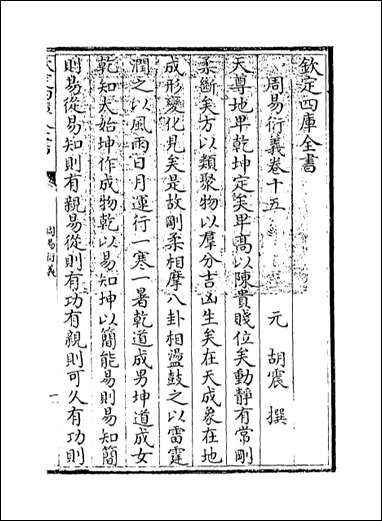 欽定四庫全書
周易衍義卷十五
元 胡震 撰
天尊地卑乾坤定矣卑高以陳貴賤位矣動靜有常剛
柔斷矣方以類聚物以羣分吉凶生矣在天成象在地
成形變化見矣是故剛柔相摩八卦相盪鼓之以雷霆
潤之以風雨日月運行一寒一暑乾道成男坤道成女
乾知大始坤作成物乾以易知坤以簡能易則易知簡
則易從易知則有親易從則有功有親則可久有功則
周易衍義
一